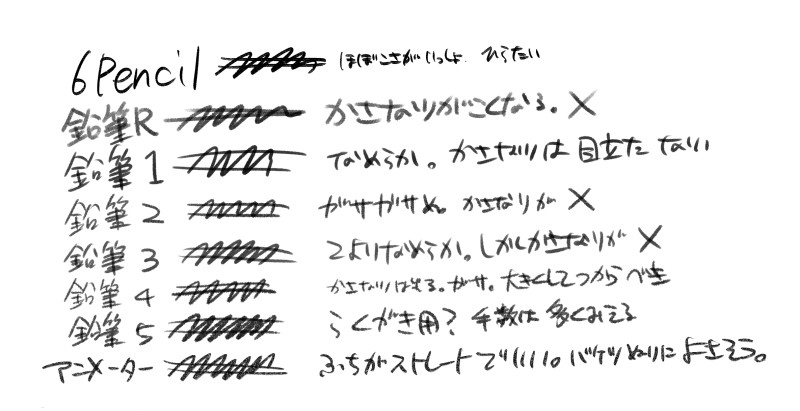 6Pencil ほぼこさがいっしょ ひらたい
鉛筆R かさなりがこくなる。×
鉛筆1 なめらか。かさなりは目立たない
鉛筆2 ガサガサめ。かさなりが×
鉛筆3 2よりなめらか。しかしかさなりが×
鉛筆4 かさなりは出る。ガサ。大きくしてつかうべき
鉛筆5 らくがき用?手数は多くみえる
アニメーター ふちがストレートでいい。バケツぬりによさそう。